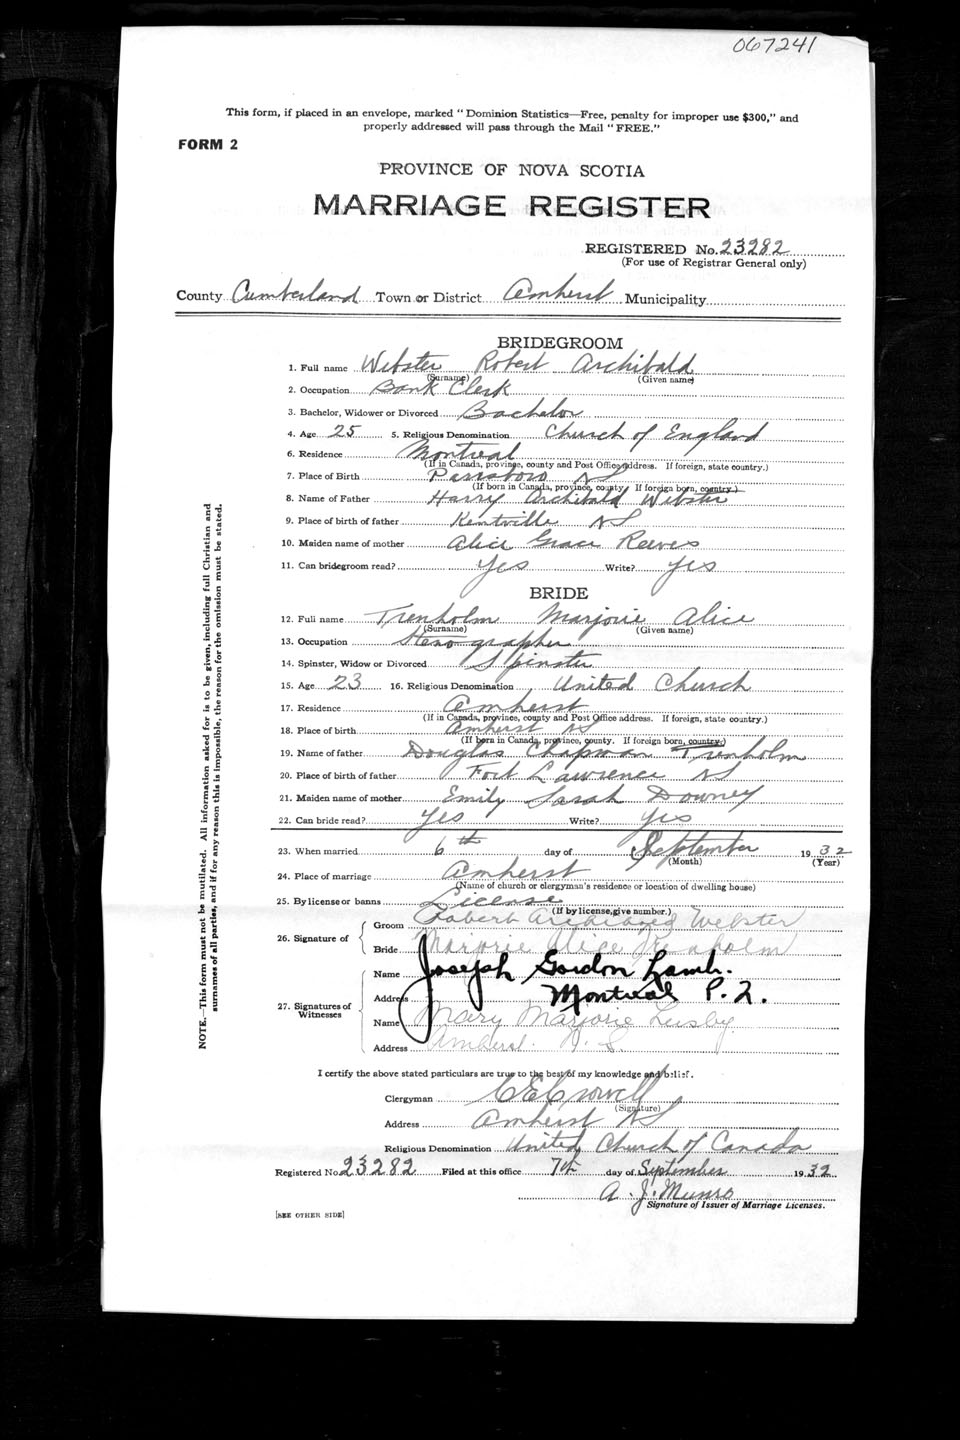 067241
This form, if placed in an envelope, marked "Dominion Statistics—Free, penalty for improper use $300," and
properly addressed will pass through the Mail "FREE."
FORM 2
PROVINCE OF NOVA SCOTIA
MARRIAGE REGISTER
REGISTERED No. 23282
(For use of Registrar General only)
County Cumberland Town or District Amherst Municipality
BRIDEGROOM
1. Full name Webster Robert Archibald
(Surname) (Given name)
2. Occupation Bank Clerk
3. Bachelor, Widower or Divorced Bachelor
4. Age 25 5. Religious Denomination Church of England
6. Residence Montreal
(If in Canada, province, county and Post Office address. If foreign, state country.)
7. Place of Birth Parrsboro NS
(If born in Canada, province, county. If foreign born, country.)
8. Name of Father Harry Archibald Webster
9. Place of birth of father Kentville NS
10. Maiden name of mother Alice Grace Reeves
11. Can bridegroom read? Yes Write? Yes
BRIDE
12. Full name Trenholm Marjorie Alice
(Surname) (Given name)
13. Occupation Stenographer
14. Spinster, Widow or Divorced Spinster
15. Age 23 16. Religious Denomination United Church
17. Residence Amherst
(If in Canada, province, county and Post Office address. If foreign, state country.)
18. Place of birth Amherst NS
(If born in Canada, province, county. If foreign born, country.)
19. Name of father Douglas Chapman Trenholm
20. Place of birth of father Fort Lawrence NS
21. Maiden name of mother Emily Sarah Downey
22. Can bride read? Yes Write? Yes
23. When married 6th day of September 1932
(Month) (Year)
24. Place of marriage Amherst
(Name of church or clergyman's residence or location of dwelling house)
25. By license or banns License
(If by license, give number.)
26. Signature of
Groom Robert Archibald Webster
Bride Marjorie Alice Trenholm
27. Signatures of Witnesses
Name Joseph Gordon Lamb.
Address Montreal P.Q.
Name Mary Marjorie Lusby
Address Amherst. N.S.
I certify the above stated particulars are true to the best of my knowledge and belief.
Clergyman C E Crowell
(Signature)
Address Amherst NS
Religious Denomination United Church of Canada
Registered No. 23282 Filed at this office 7th day of September 1932
A. J. Munro
Signature of Issuer of Marriage Licenses.
[SEE OTHER SIDE]
NOTE.—This form must not be mutilated. All information asked for is to be given, including full Christian and
surnames of all parties, and if for any reason this is impossible, the reason for the omission must be stated.